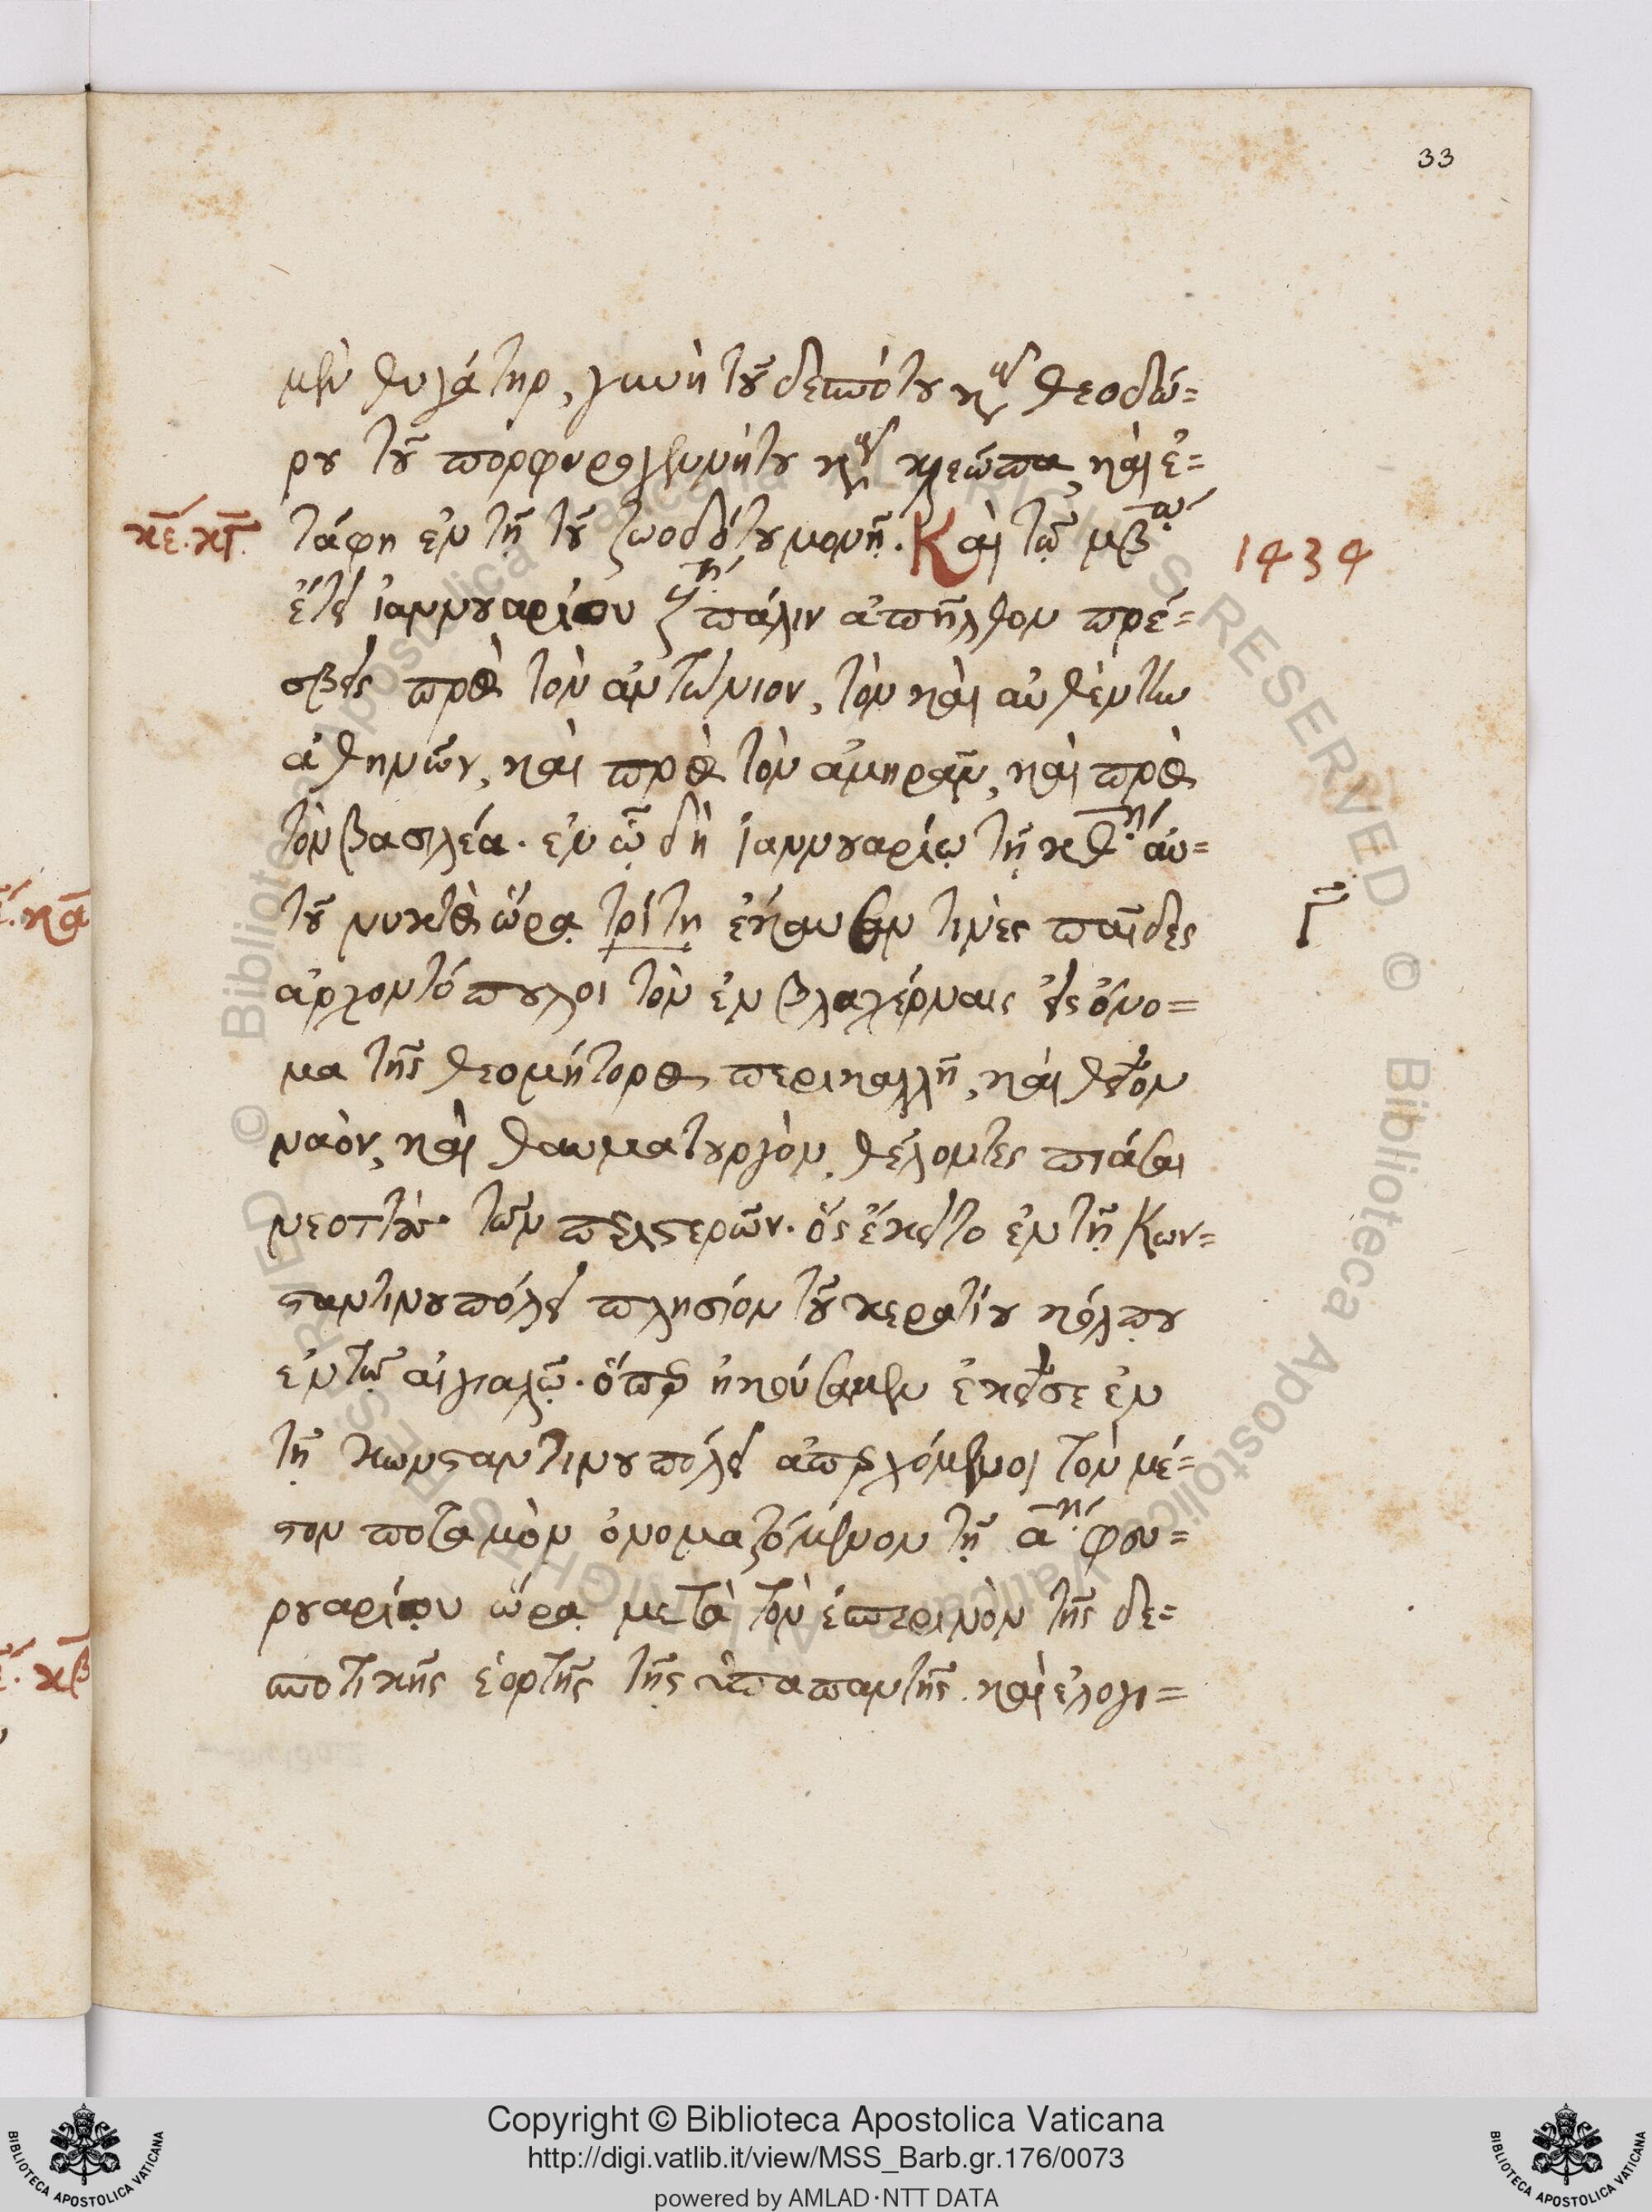 33
μὲν θυγάτηρ, γυνὴ τοῦ δεσπότου κυροῦ θεοδώ=
ρου τοῦ πορφυρογεννήτου κυροῦ κλεώπα, καὶ ἐ=
κε. κγ. τάφη ἐν τῇ τοῦ ζωοδότου μονῇ. Καὶ τῷ μβῳ 1434
ἔτει ἰαννουαρίου πάλιν ἀπῆλθον πρέ=
σβεις πρὸς τὸν ἀντώνιον, τὸν καὶ αὐθέντην
ἀθηνῶν, καὶ πρὸς τὸν ἀμηρᾶν, καὶ πρὸς
τὸν βασιλέα. ἐν ᾧ δὴ ἰαννουαρίῳ τῇ κθῃ αὐ=
κα τοῦ νυκτὸς ὥρᾳ τρίτῃ ἔκαυσάν τινες παῖδες γ
ἀρχοντόπουλοι τὸν ἐν βλαχέρναις εἰς ὄνο=
μα τῆς θεομήτορος περικαλλῆ, καὶ θεῖον
ναὸν, καὶ θαυματουργὸν, θέλοντες πιάσαι
νεοττοὺς τῶν περιστερῶν. ὃς ἔκειτο ἐν τῇ Κων=
σταντινουπόλει πλησίον τοῦ κερατίου κόλπου
ἐν τῷ αἰγιαλῷ. ὅπερ ἠκούσαμεν ἐκεῖσε ἐν
τῇ κωνσταντινουπόλει ἀπερχόμενοι τὸν μέ=
σον ποταμὸν ὀνομαζόμενον τῇ αῃ φευ=
ρουαρίου ὥρᾳ μετὰ τὸν ἑσπερινὸν τῆς δε=
κβ σποτικῆς ἑορτῆς τῆς ὑπαπαντῆς. καὶ ἐλογι=
Copyright © Biblioteca Apostolica Vaticana
http://digi.vatlib.it/view/MSS_Barb.gr.176/0073
powered by AMLAD·NTT DATA